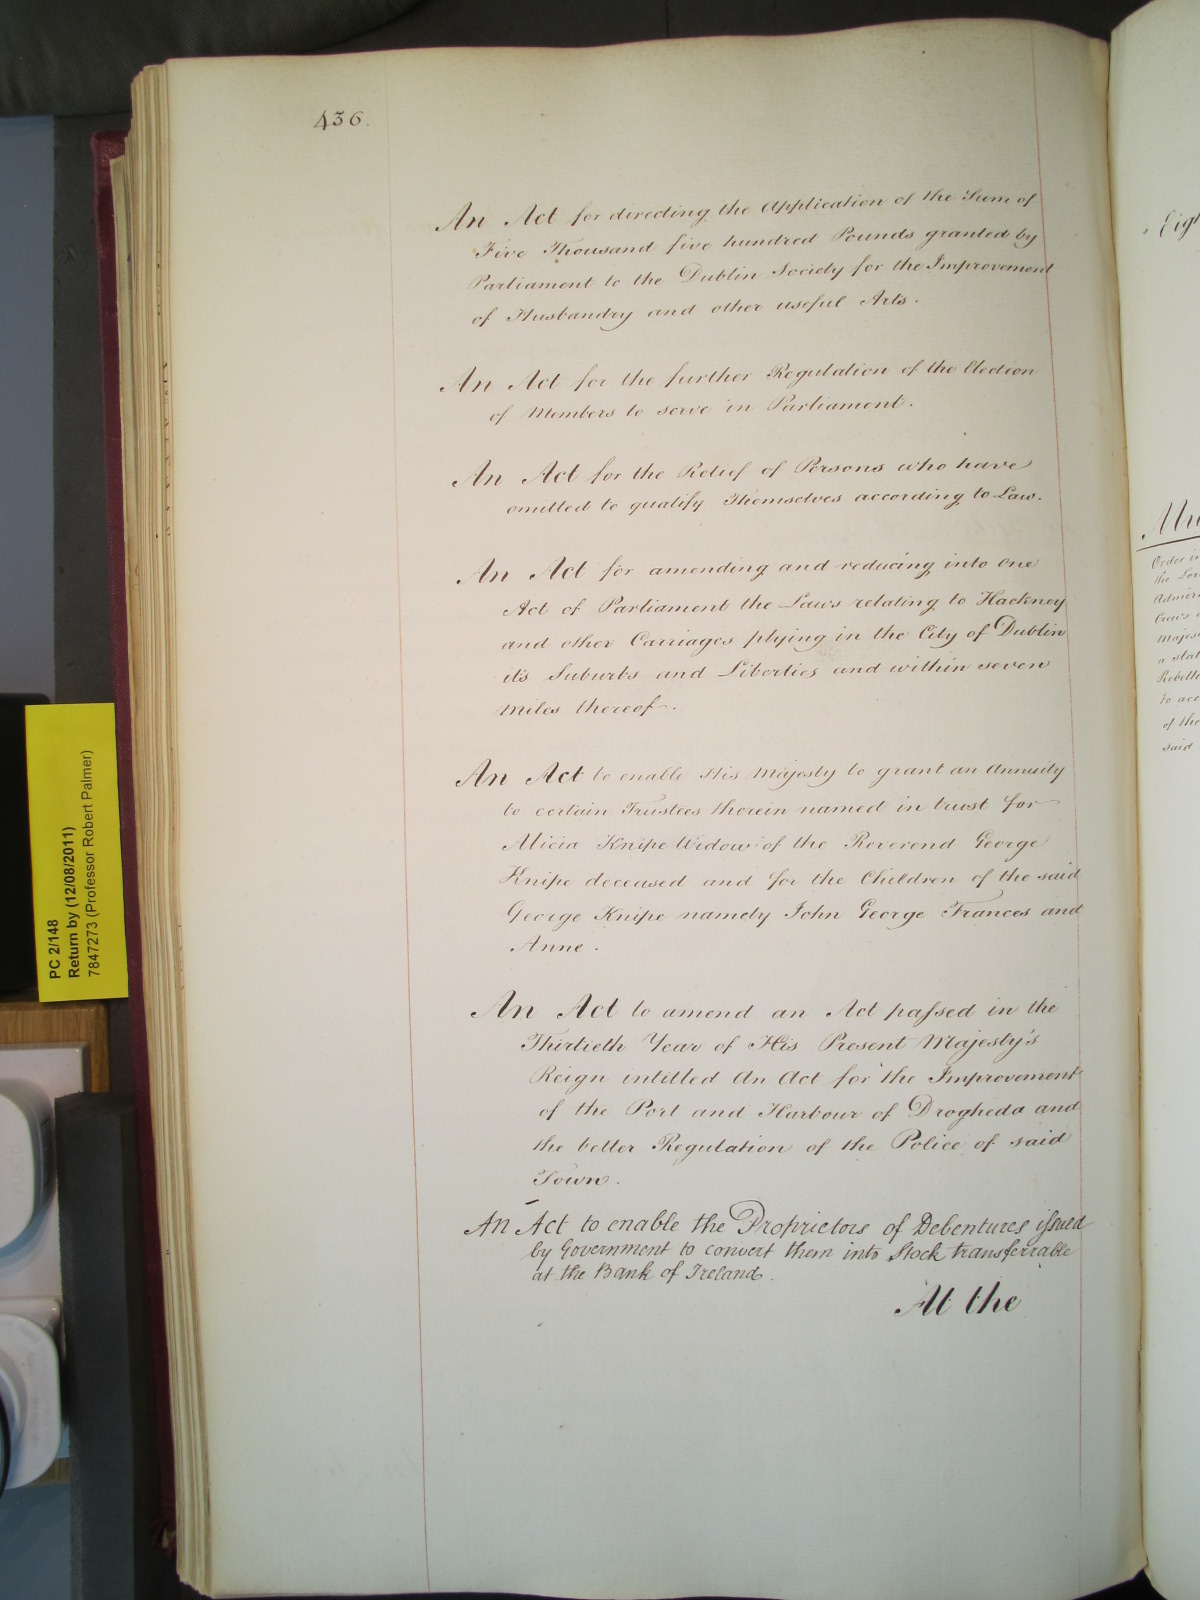 436.
An Act for directing the Application of the Sum of
Five Thousand five hundred Pounds granted by
Parliament to the Dublin Society for the Improvement
of Husbandry and other useful Arts.
An Act for the further Regulation of the Election
of Members to serve in Parliament.
An Act for the Relief of Persons who have
omitted to qualify Themselves according to Law.
An Act for amending and reducing into one
Act of Parliament the Laws relating to Hackney
and other Carriages plying in the City of Dublin
its Suburbs and Liberties and within seven
Miles thereof.
An Act to enable His Majesty to grant an Annuity
to certain Trustees therein named in trust for
Alicia Knipe Widow of the Reverend George
Knipe deceased and for the Children of the said
George Knipe namely John George Frances and
Anne.
An Act to amend an Act passed in the
Thirtieth Year of His Present Majesty's
Reign intitled An Act for the Improvement
of the Port and Harbour of Drogheda and
the better Regulation of the Police of said
Town.
An Act to enable the Proprietors of Debentures issued
by Government to convert them into Stock transferrable
at the Bank of Ireland.
At the
PC 2/148
Return by (12/08/2011)
7847273 (Professor Robert Palmer)
the
of the
said